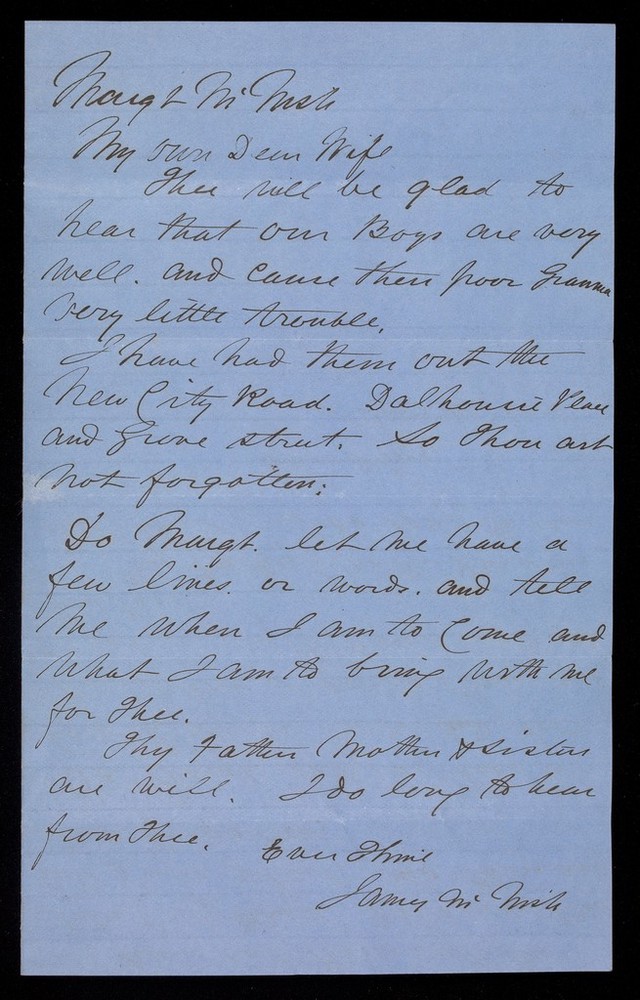 Margt McNish
My own Dear Wife
Thee will be glad to
hear that our Boys are very
well. and cause their poor Granma
very little trouble.
I have had them out the
New City Road. Dalhousie Place
and Grove street. So Thou art
not forgotten:
Do Margt. let me have a
few lines. or words. and tell
me when I am to Come and
what I am to bring with me
for Thee.
Thy Father Mother & Sister
are well. I do long to hear
from Thee.
Ever Thine
James McNish